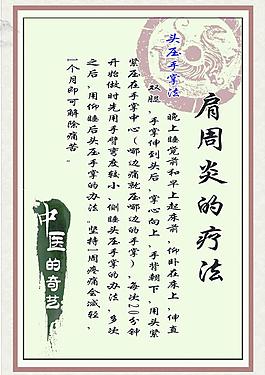 肩周炎的疗法
头压手掌法
晚上睡觉前和早上起床前，仰卧在床上，伸直
双腿，手掌伸到头后，掌心向上，手背朝下，用头紧
紧压在手掌中心（哪边痛就压哪边的手掌），每次20分钟
开始做时先用手臂弯度较小、侧睡头压手掌的办法，多次
之后，用仰睡后头压手掌的办法。坚持一周疼痛会减轻，
一个月即可解除痛苦。
中医的奇艺